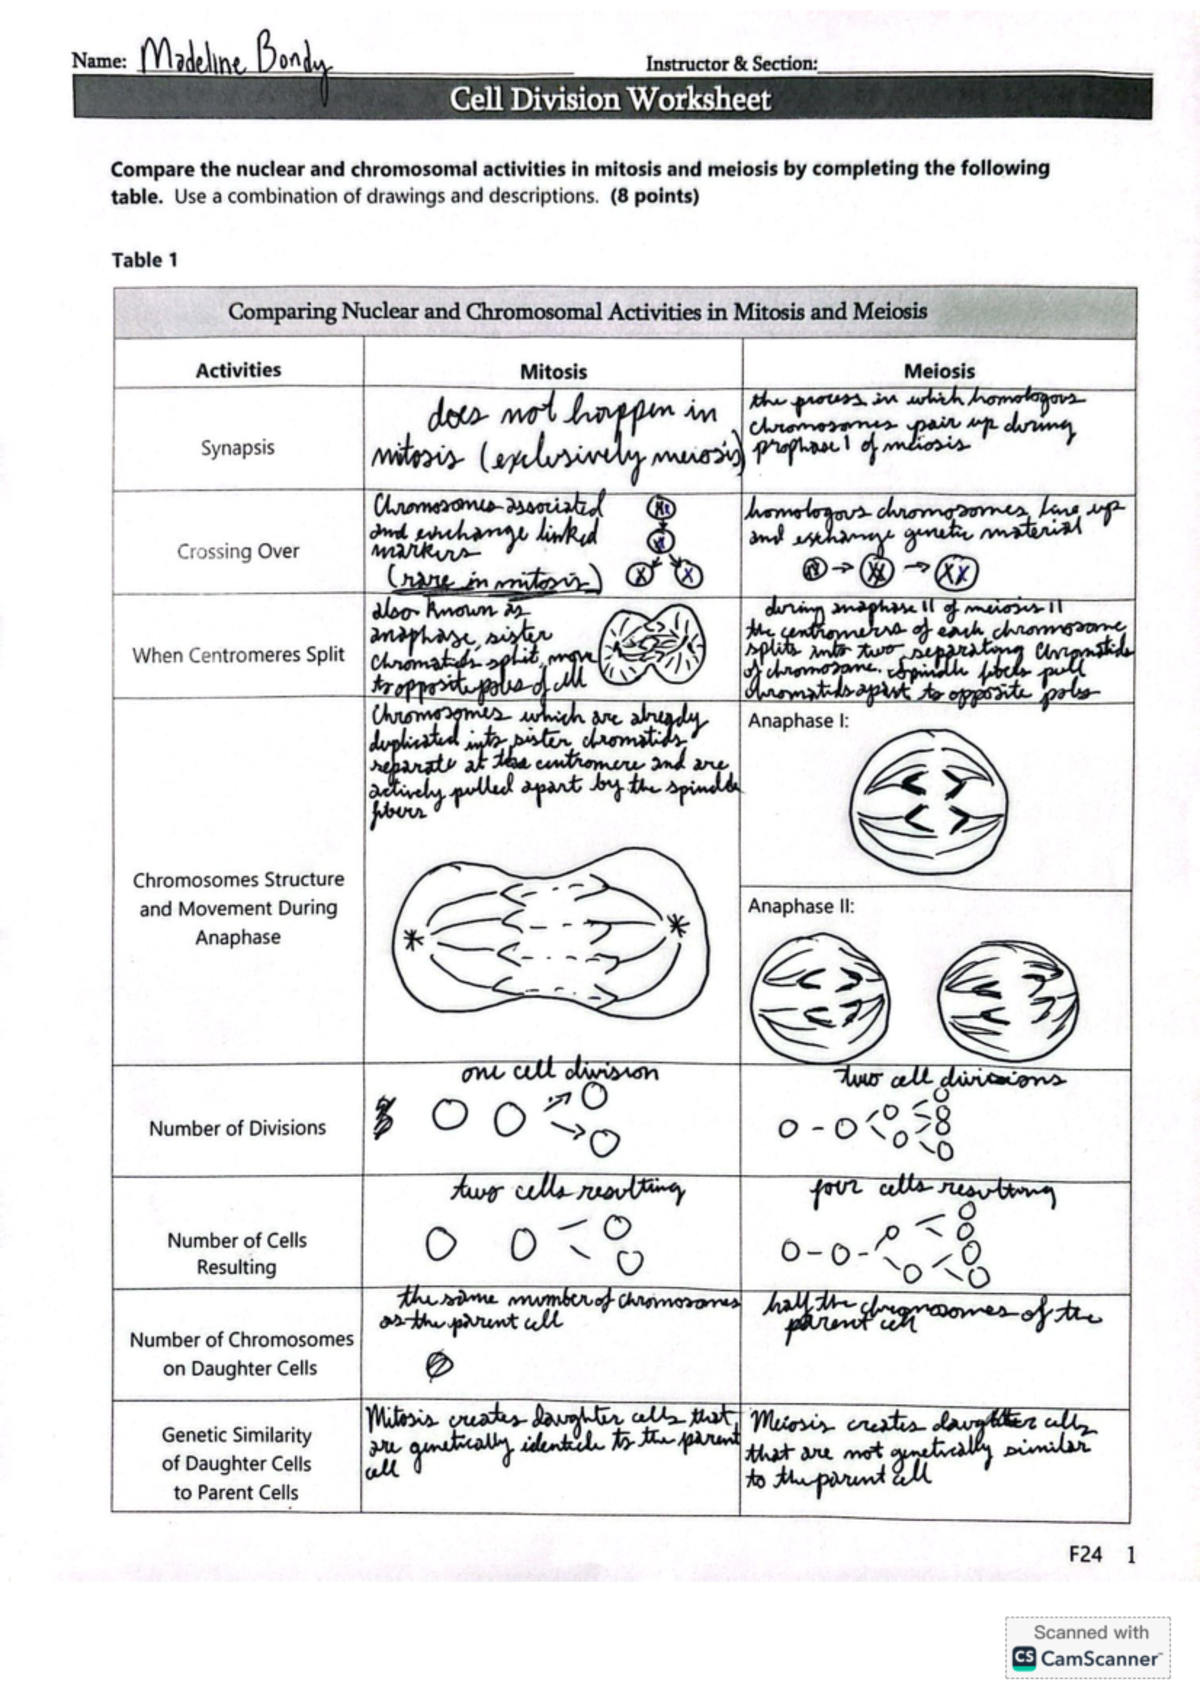 Name: Madeline Bondy Instructor & Section:
Cell Division Worksheet
Compare the nuclear and chromosomal activities in mitosis and meiosis by completing the following
table. Use a combination of drawings and descriptions. (8 points)
Table 1
Comparing Nuclear and Chromosomal Activities in Mitosis and Meiosis
Activities
Mitosis
Meiosis
Synapsis
does not happen in
mitosis (exclusively meiosis)
the process in which homologous
chromosomes pair up during
prophase 1 of meiosis
Crossing Over
Chromosomes associated
and exchange linked
markers
(rare in mitosis)
homologous chromosomes line up
and exchange genetic material
When Centromeres Split
also known as
anaphase, sister
chromatids split, move
to opposite poles of cell
during anaphase II of meiosis II
the centromeres of each chromosome
splits into two separating chromatids
of chromosome. Spindle fibers pull
chromatids apart to opposite poles
Chromosomes Structure
and Movement During
Anaphase
Chromosomes which are already
duplicated into sister chromatids
separate at the centromere and are
actively pulled apart by the spindle
fibers
Anaphase I:
Anaphase II:
Number of Divisions
one cell division
two cell divisions
Number of Cells
Resulting
two cells resulting
four cells resulting
Number of Chromosomes
on Daughter Cells
the same number of chromosomes
as the parent cell
half the chromosomes of the
parent cell
Genetic Similarity
of Daughter Cells
to Parent Cells
Mitosis creates daughter cells that
are genetically identicle to the parent
cell
Meiosis creates daughter cells
that are not genetically similar
to the parent cell
F24 1
Scanned with
CS CamScanner